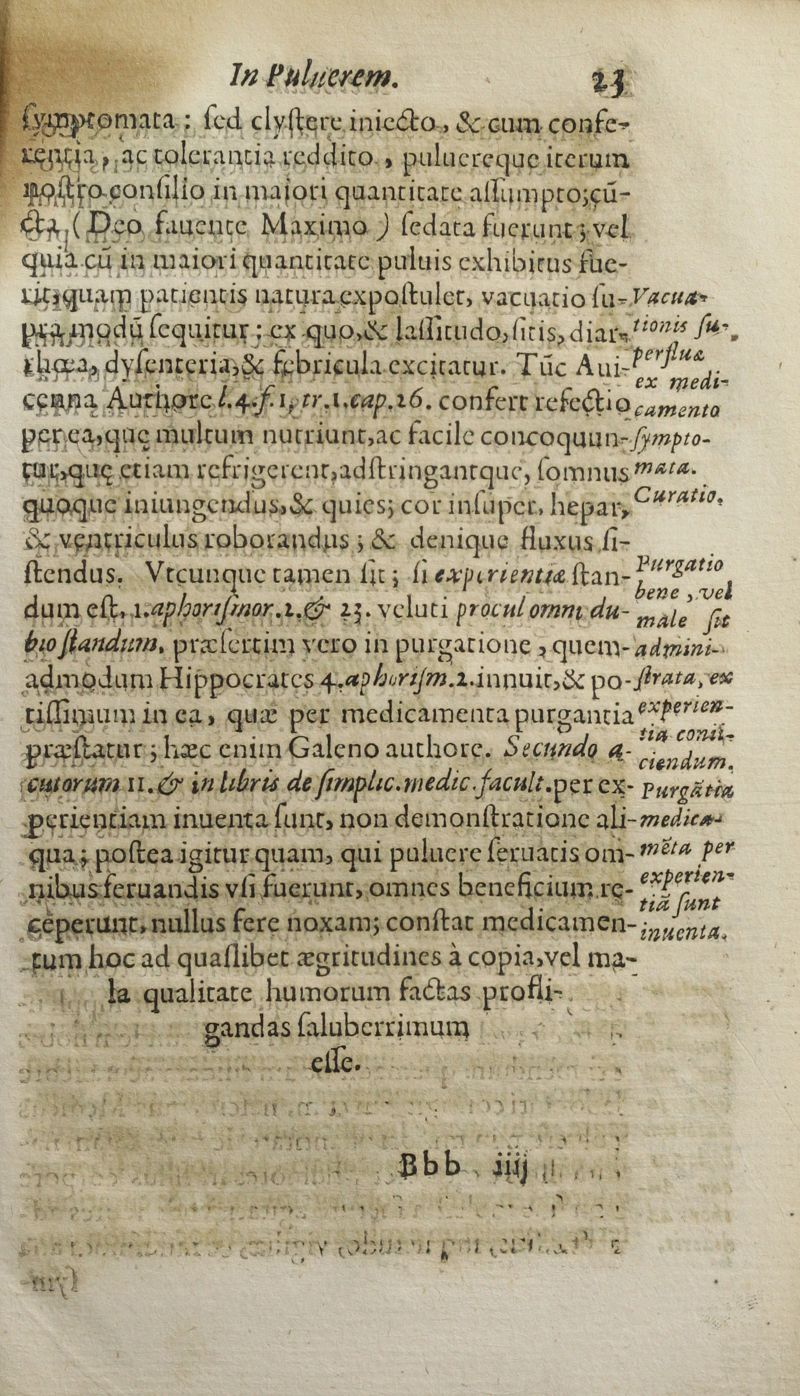 In Puluerem. 23
ſymptomata : ſed clyſtere iniecto, & cum confe-
rentia, ac tolerantia reddito, puluereque iterum
noſtro conſilio in maiori quantitate aſſumpto; cū-
cta, (Deo fauente Maximo) ſedata fuerunt; vel
quia cū in maiori quantitate puluis exhibitus fue-
rit, quam patientis natura expoſtulet, vacuatio ſu-
pra modū ſequitur; ex quo, & laſſitudo, ſitis, diar-
rhœa, dyſenteria, & febricula excitatur. Tūc Aui-
cenna Authore l.4.f.1, tr.1.cap.16. confert refectio
per ea, quę multum nutriunt, ac facile concoquun-
tur, quę etiam refrigerent, adſtringantque, ſomnus
quoque iniungendus, & quies; cor inſuper, hepar,
& ventriculus roborandus; & denique fluxus ſi-
ſtendus. Vtcunque tamen ſit; ſi experientiæ ſtan-
dum eſt, 1.aphoriſmor.1.& 23. veluti procul omni du-
bio ſtandum, præſertim vero in purgatione, quem-
admodum Hippocrates 4.aphoriſm.2.innuit, & po-
tiſſimum in ea, quæ per medicamenta purgantia
præſtatur; hæc enim Galeno authore. Secundo a-
cutorum 11.& in libris de ſimplic.medic.facult.per ex-
perientiam inuenta ſunt, non demonſtratione ali-
qua; poſtea igitur quam, qui puluere ſeruatis om-
nibus ſeruandis vſi fuerunt, omnes beneficium re-
ceperunt, nullus fere noxam; conſtat medicamen-
tum hoc ad quaſlibet ægritudines à copia, vel ma-
la qualitate humorum factas profli-
gandas ſaluberrimum
eſſe.
Vacua-
tionis ſu-
perfluæ
ex medi-
camento
ſympto-
mata.
Curatio.
Purgatio
bene, vel
male ſit
admini-
ſtrata, ex
experien-
tia conii-
ciendum.
Purgātia
medica-
meta per
experien-
tiā ſunt
inuenta.
Bbb iiij